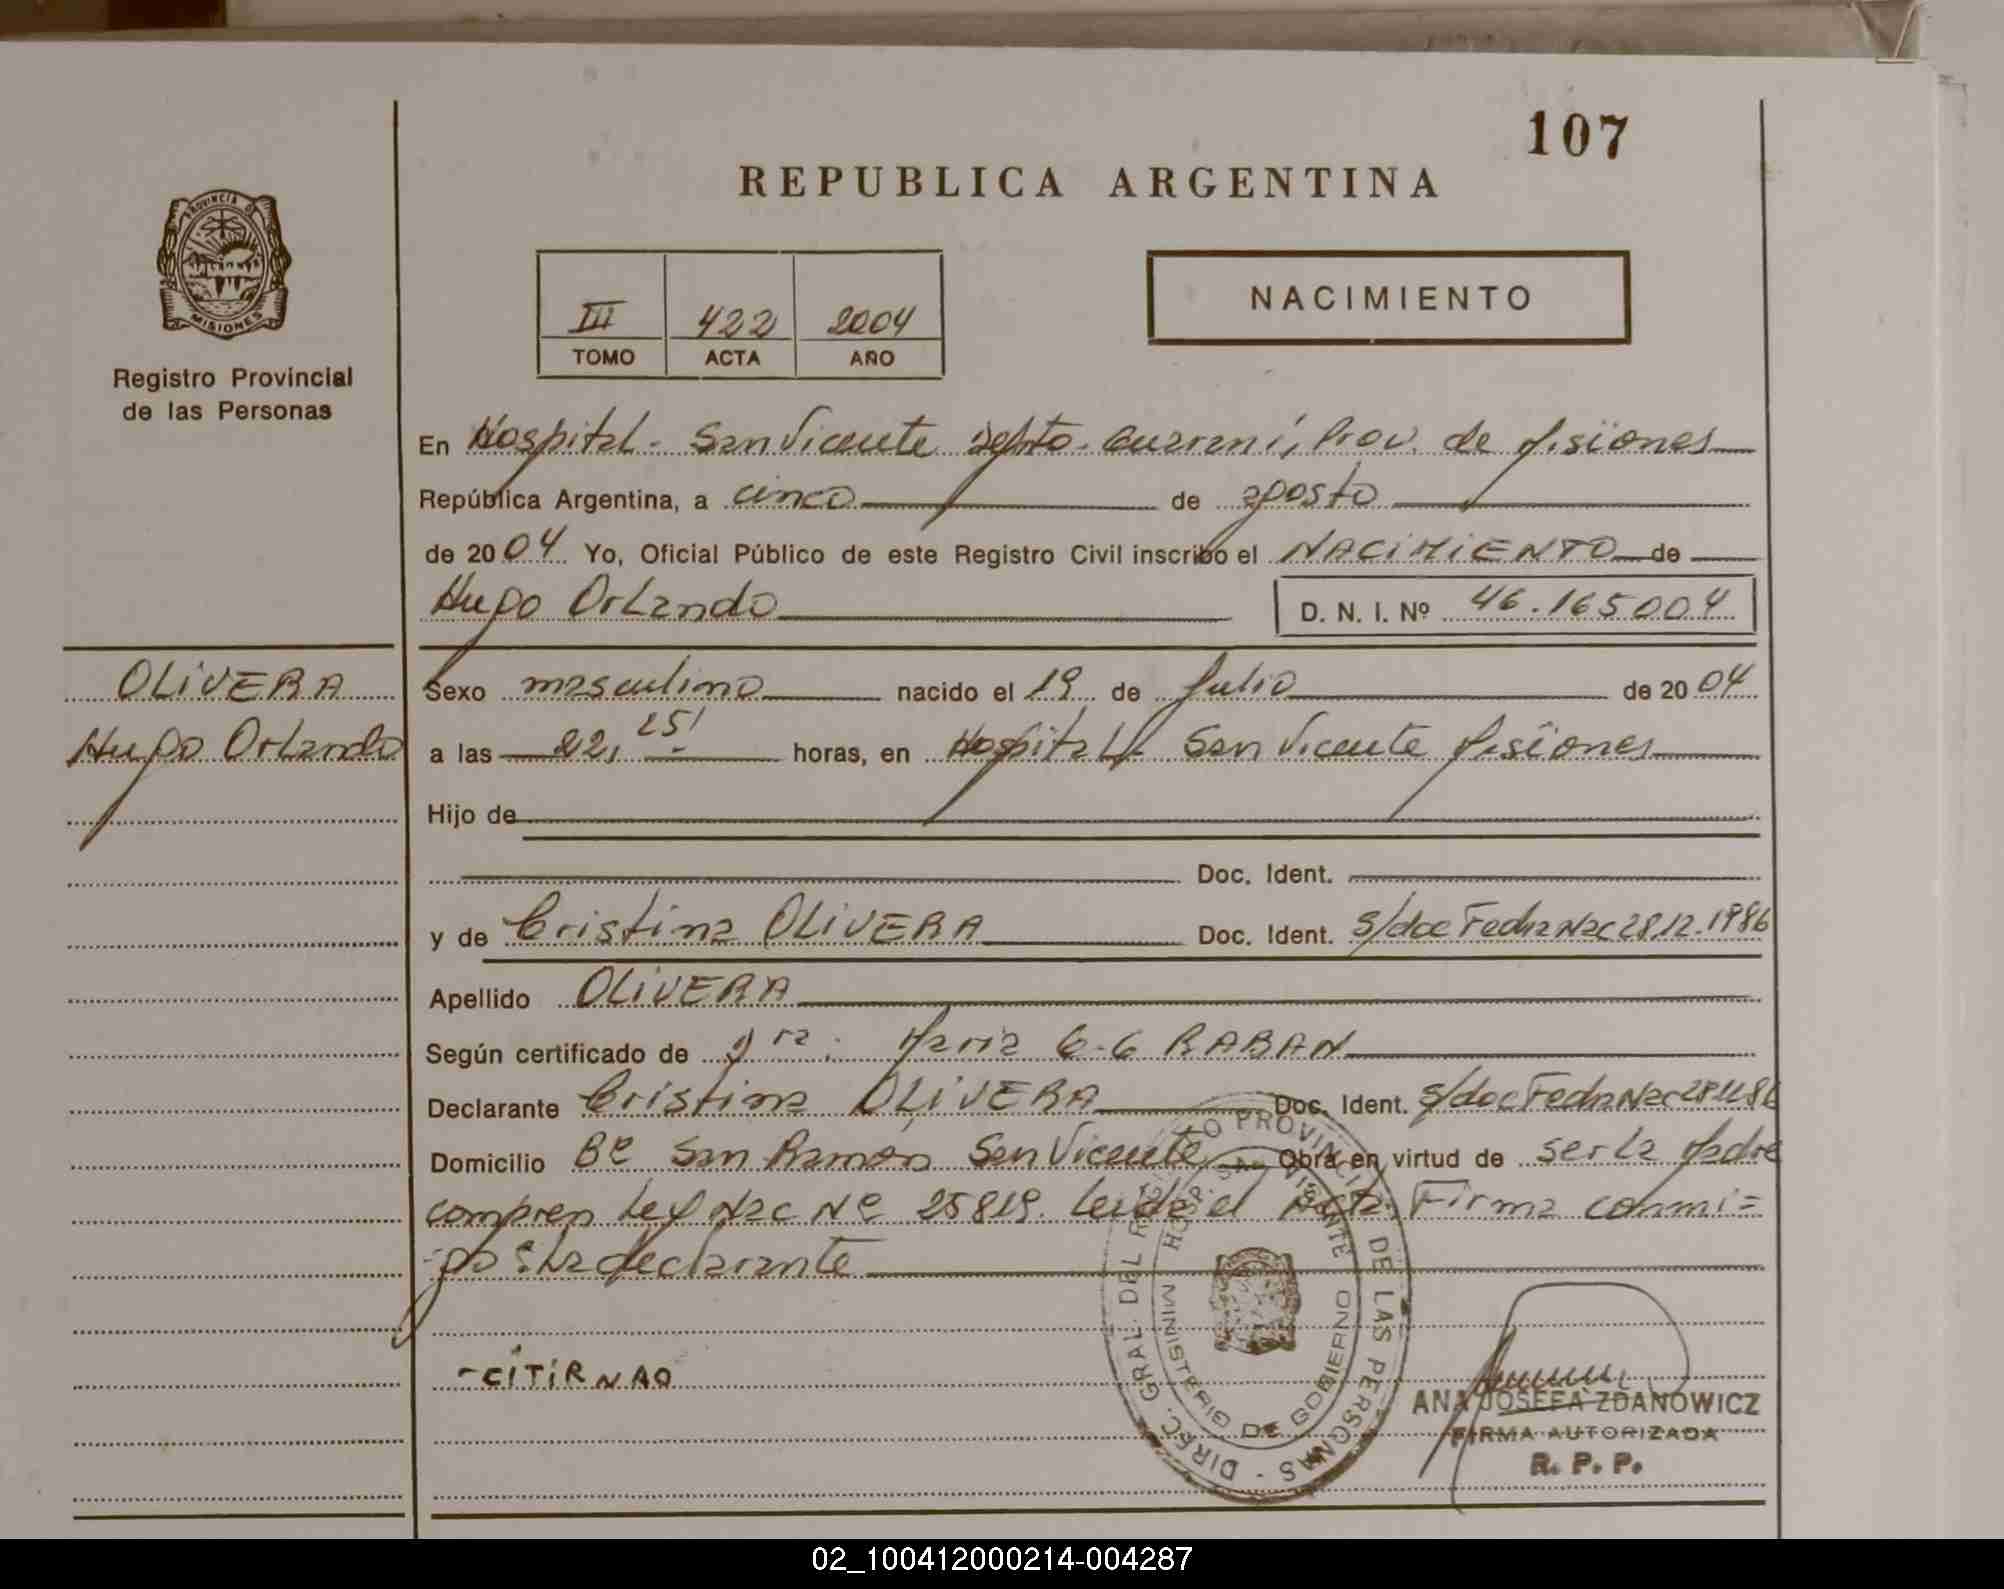 107
REPUBLICA ARGENTINA
PROVINCIA DE MISIONES
Registro Provincial
de las Personas
III 422 2004
TOMO ACTA AÑO
NACIMIENTO
En Hospital - San Vicente Depto. Guaraní, Prov. de Misiones
República Argentina, a cinco de agosto
de 2004 Yo, Oficial Público de este Registro Civil inscribo el NACIMIENTO de
Hugo Orlando D. N. I. Nº 46.165004
OLIVERA
Hugo Orlando
Sexo masculino nacido el 19 de Julio de 2004
a las 22, 25' horas, en Hospital - San Vicente Misiones
Hijo de
Doc. Ident.
y de Cristina OLIVERA Doc. Ident. S/doc Fecha Nac 28.12.1986
Apellido OLIVERA
Según certificado de María RABAN
Declarante Cristina OLIVERA Doc. Ident. S/doc Fecha Nac
Domicilio Bº San Ramón San Vicente Obra en virtud de ser la Madre
compren Ley Nac Nº 25819. Leída el Acta Firma conmi=
go la declarante
-CITIR NAO
DIREC. GRAL. DEL REGISTRO PROVINCIAL DE LAS PERSONAS -
HOSP. SAN VISENTE
MINISTERIO DE GOBIERNO
ANA JOSEFA ZDANOWICZ
FIRMA AUTORIZADA
R. P. P.
02_100412000214-004287